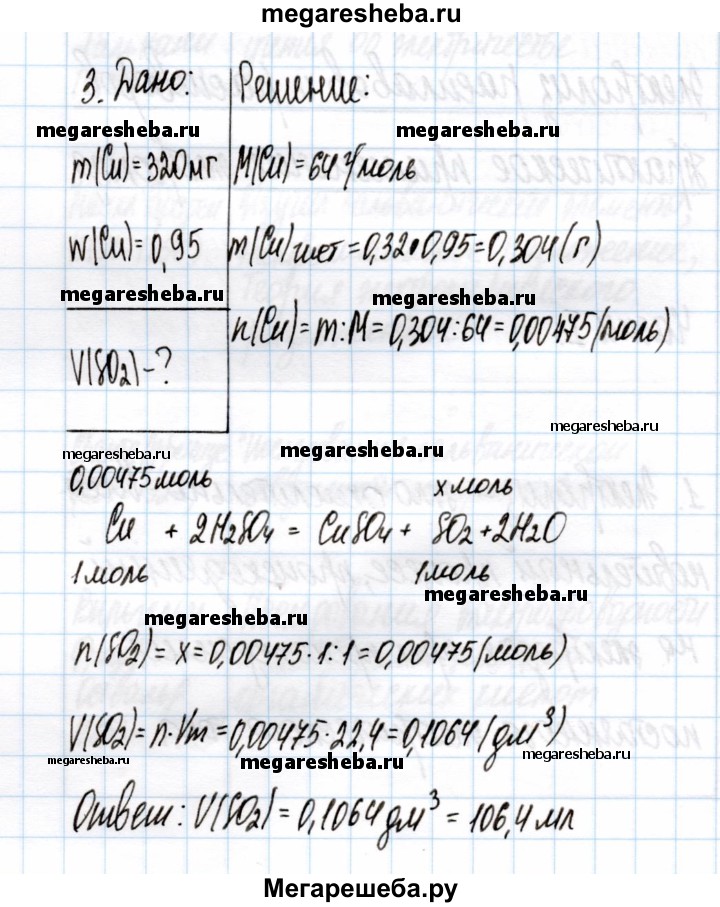 megaresheba.ru
3. Дано: Решение:
megaresheba.ru megaresheba.ru
m(Cu)=320мг M(Cu)=64 г/моль
w(Cu)=0,95 m(Cu)чист=0,32•0,95=0,304(г)
megaresheba.ru megaresheba.ru
n(Cu)=m:M=0,304:64=0,00475(моль)
V(SO2)-?
megaresheba.ru
megaresheba.ru
0,00475моль x моль
Cu + 2H2SO4 = CuSO4 + SO2+2H2O
1моль 1моль
megaresheba.ru
megaresheba.ru
n(SO2)=x=0,00475·1:1=0,00475(моль)
V(SO2)=n·Vm=0,00475·22,4=0,1064(дм³)
megaresheba.ru megaresheba.ru megaresheba.ru
Ответ: V(SO2)=0,1064дм³=106,4мл
Мегарешеба.ру